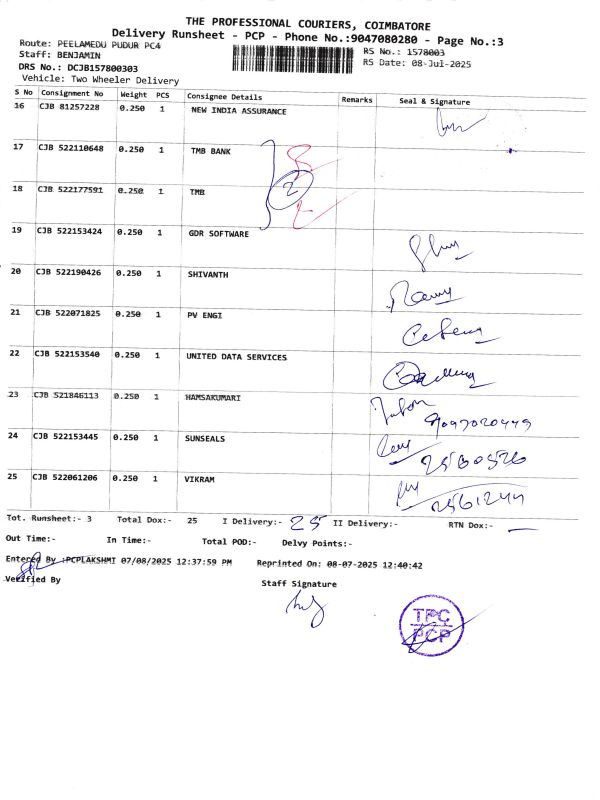 THE PROFESSIONAL COURIERS, COIMBATORE
Delivery Runsheet - PCP - Phone No.:9047080280 - Page No.:3
Route: PEELAMEDU PUDUR PC4
RS No.: 1578003
Staff: BENJAMIN
RS Date: 08-Jul-2025
DRS No.: DCJB157800303
Vehicle: Two Wheeler Delivery
S No Consignment No Weight PCS Consignee Details Remarks Seal & Signature
16 CJB 81257228 0.250 1 NEW INDIA ASSURANCE
17 CJB 522110648 0.250 1 TMB BANK
2
18 CJB 522177591 0.250 1 TMB
19 CJB 522153424 0.250 1 GDR SOFTWARE
20 CJB 522190426 0.250 1 SHIVANTH
21 CJB 522071825 0.250 1 PV ENGI
22 CJB 522153540 0.250 1 UNITED DATA SERVICES
23 CJB 521846113 0.250 1 HAMSAKUMARI
24 CJB 522153445 0.250 1 SUNSEALS
25 CJB 522061206 0.250 1 VIKRAM
Tot. Runsheet:- 3 Total Dox:- 25 I Delivery:- 25 II Delivery:- RTN Dox:- —
Out Time:- In Time:- Total POD:- Delvy Points:-
Entered By :PCPLAKSHMI 07/08/2025 12:37:59 PM Reprinted On: 08-07-2025 12:40:42
Verified By
Staff Signature
TPC
PCP